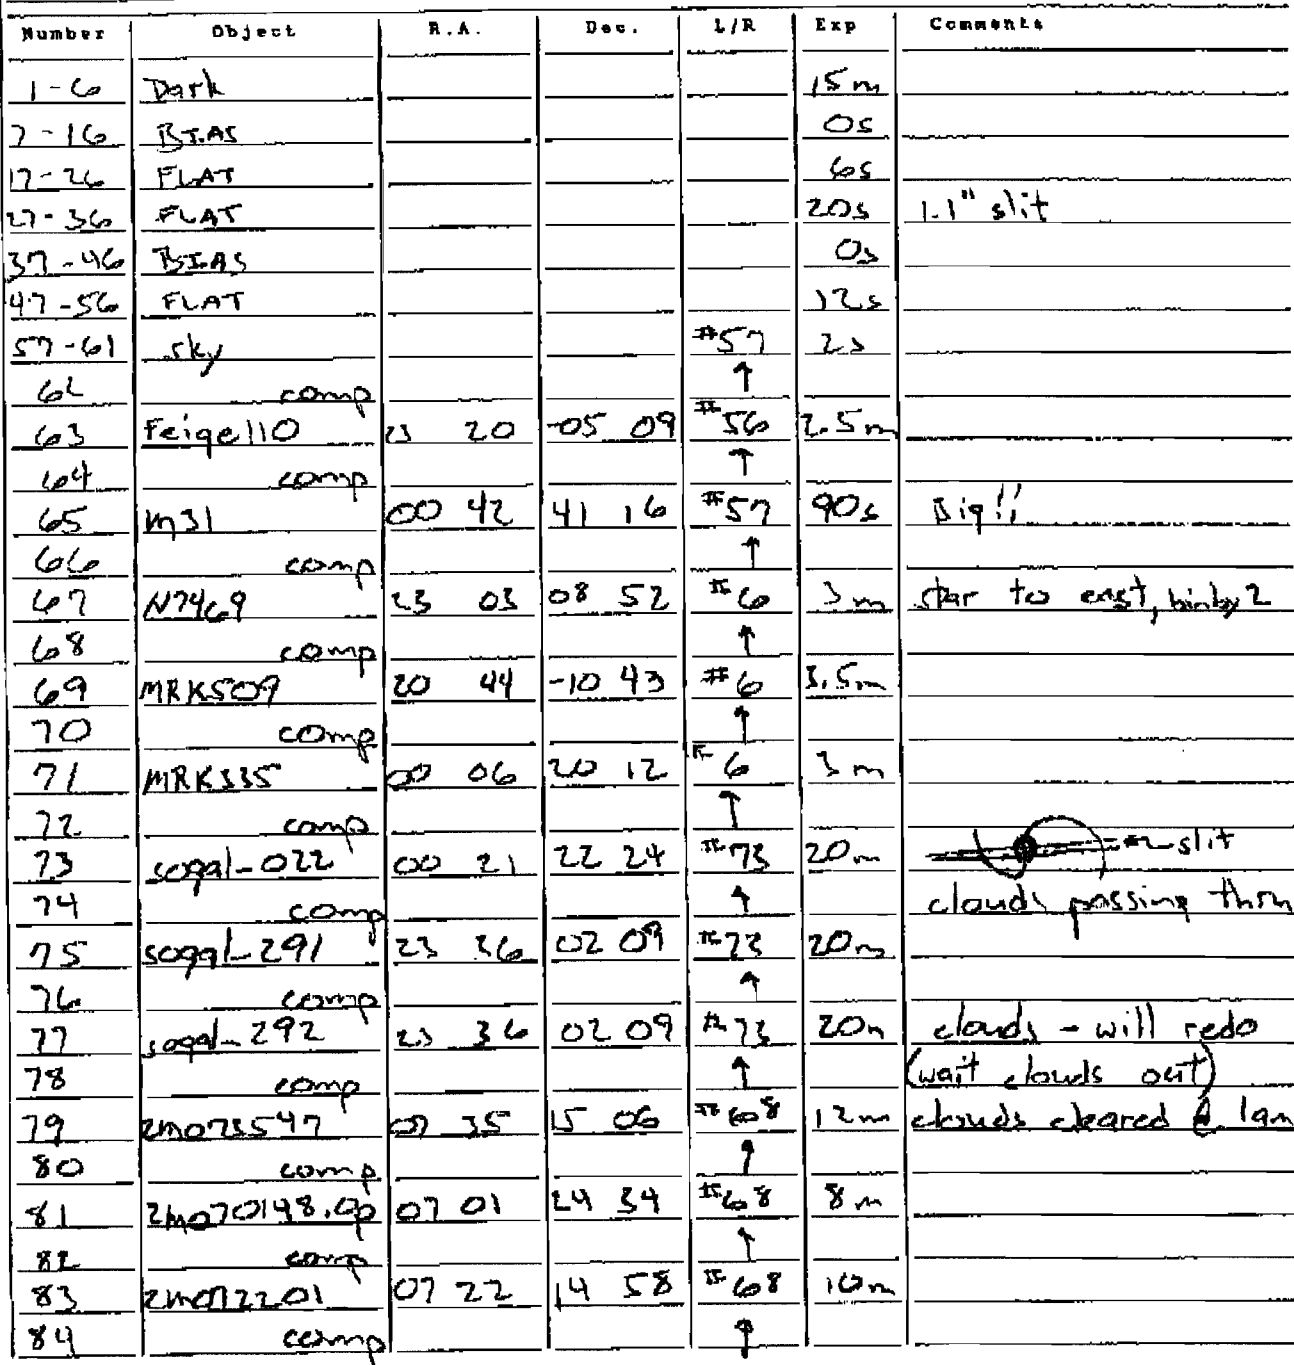 Number Object R.A. Dec. L/R Exp Comments
1-6 Dark 15m
7-16 BIAS 0s
17-26 FLAT 6s
27-36 FLAT 20s 1.1" slit
37-46 BIAS 0s
47-56 FLAT 12s
57-61 sky #57 2s
62 comp ↑
63 Feige110 23 20 -05 09 #56 2.5m
64 comp ↑
65 M31 00 42 41 16 #57 90s Big!!
66 comp ↑
67 N7469 23 03 08 52 #6 3m star to east, binby2
68 comp ↑
69 MRK509 20 44 -10 43 #6 3.5m
70 comp ↑
71 MRK335 00 06 20 12 #6 3m
72 comp ↑
73 sogal-022 00 21 22 24 #73 20m slit
74 comp ↑ clouds passing thru
75 sogal-291 23 36 02 09 #73 20m
76 comp ↑
77 sogal-292 23 36 02 09 #73 20m clouds - will redo
78 comp ↑ (wait clouds out)
79 2m073547 07 35 15 06 #68 12m clouds cleared @ 1am
80 comp ↑
81 2m070148.0p 07 01 24 34 #68 8m
82 comp ↑
83 2m072201 07 22 14 58 #68 10m
84 comp ↑